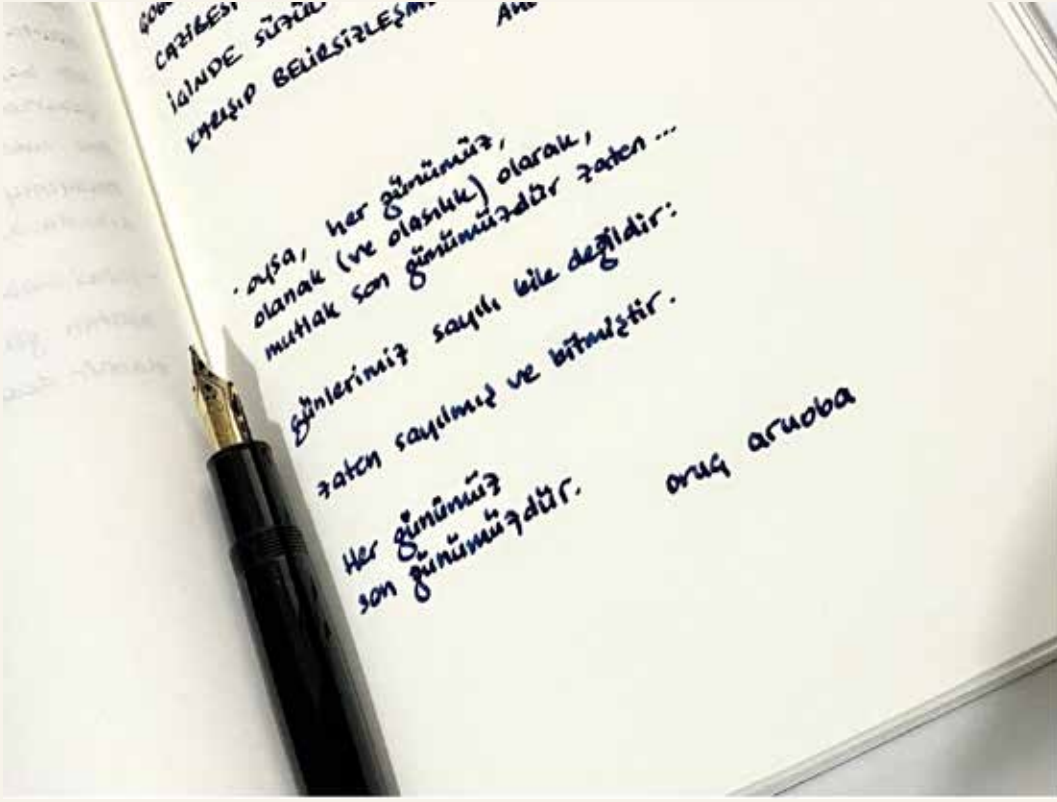 CAZİBESİ
İÇİNDE
KARIŞIP
· oysa, her günümüz,
olanak (ve olasılık) olarak,
mutlak son günümüzdür zaten ...
günlerimiz sayılı bile değildir:
zaten sayılmış ve bitmiştir.
Her günümüz
son günümüzdür. oruç aruoba